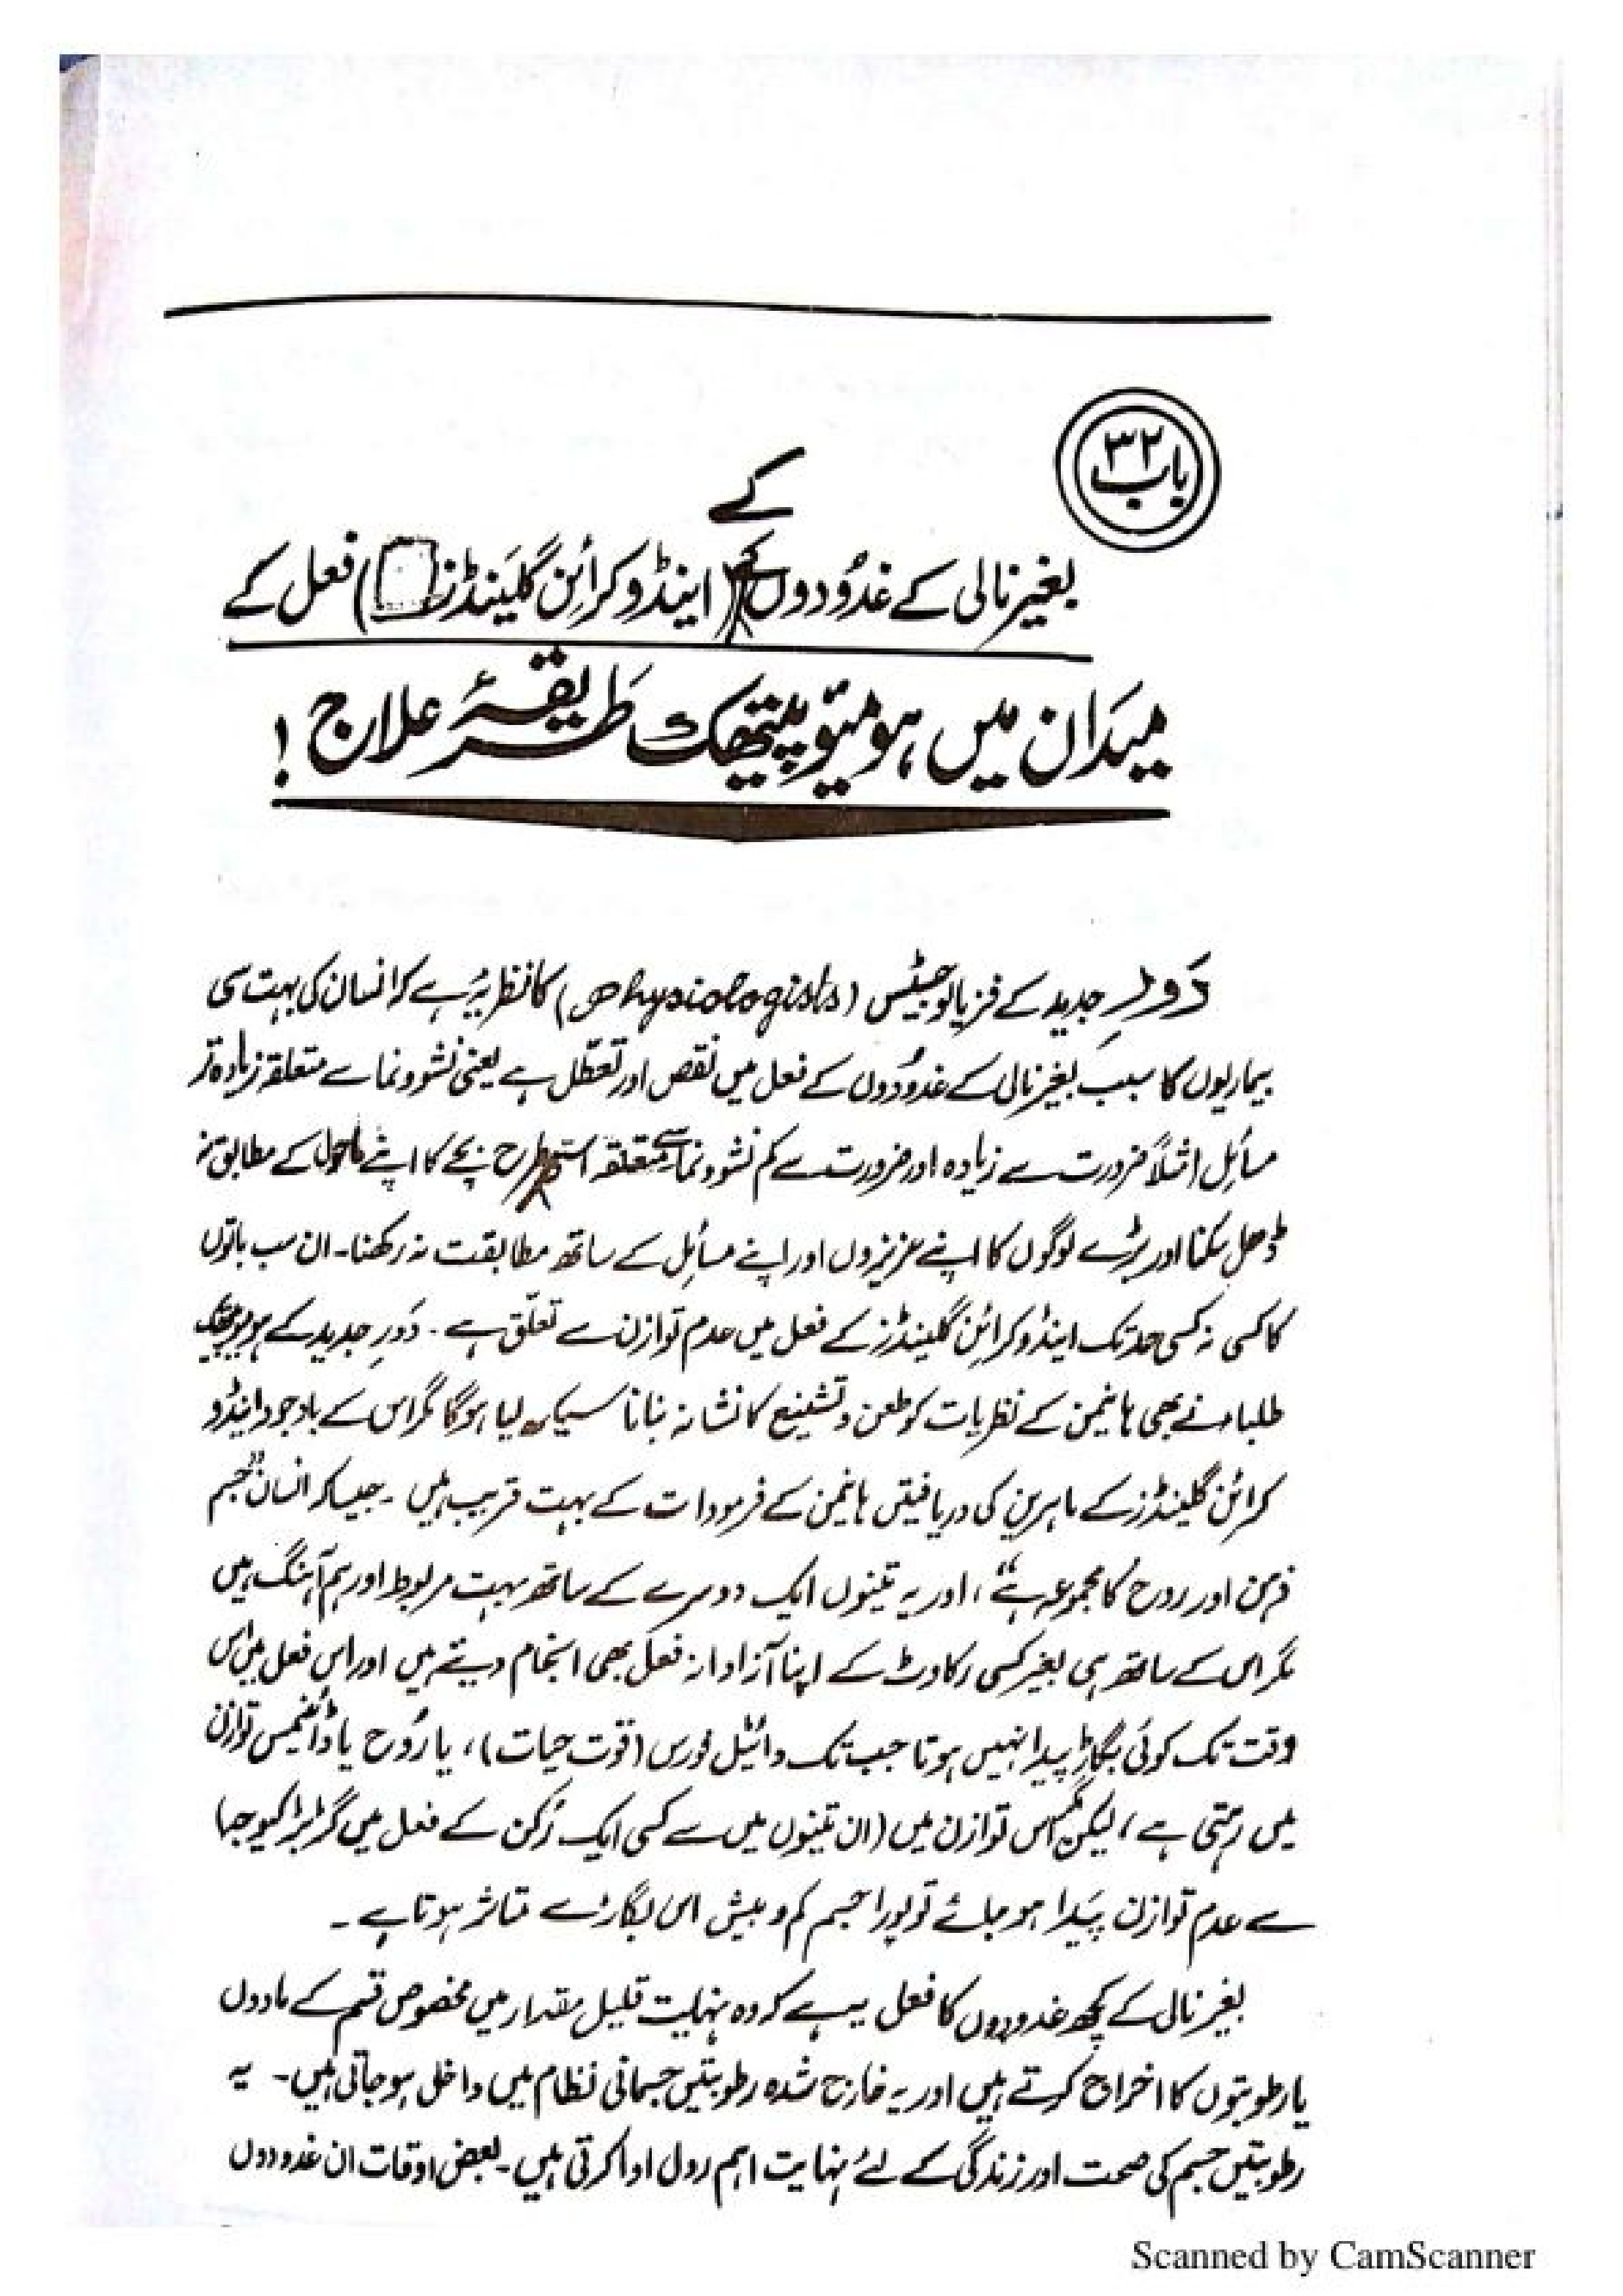 باب ۳۲
کے
بغیر نالی کے غدُودوں (اینڈوکرائن گلینڈز) فعل کے
میدان میں ہومیوپیتھک طریقۂ علاج!
دَورِ جدید کے فزیالوجیٹس (Physiologists) کا نظریہ ہے کہ انسان کی بہت سی
بیماریوں کا سبب بغیر نالی کے غدُودوں کے فعل میں نقص اور تعطّل ہے یعنی نشوونما سے متعلقہ زیادہ تر
مسائل (مثلاً ضرورت سے زیادہ اور ضرورت سے کم نشوونما سے متعلقہ اسی طرح بچے کا اپنے ماحول کے مطابق نہ
ڈھل سکنا اور بڑے لوگوں کا اپنے عزیزوں اور اپنے مسائل کے ساتھ مطابقت نہ رکھنا۔ ان سب باتوں
کا کسی نہ کسی حد تک اینڈوکرائن گلینڈز کے فعل میں عدم توازن سے تعلّق ہے۔ دَورِ جدید کے ہومیوپیتھک
طلباء نے بھی ہانیمن کے نظریات کو طعن و تشنیع کا نشانہ بنانا سیکھ لیا ہوگا مگر اس کے باوجود اینڈو
کرائن گلینڈز کے ماہرین کی دریافتیں ہانیمن کے فرمودات کے بہت قریب ہیں۔ جیسا کہ انسان ”جسم
ذہن اور روح کا مجموعہ ہے“، اور یہ تینوں ایک دوسرے کے ساتھ بہت مربوط اور ہم آہنگ ہیں
مگر اس کے ساتھ ہی بغیر کسی رکاوٹ کے اپنا آزادانہ فعل بھی انجام دیتے ہیں اور اس فعل میں اس
وقت تک کوئی بگاڑ پیدا نہیں ہوتا جب تک وائیٹل فورس (قوت حیات)، یا رُوح یا ڈائنمس توازن
میں رہتی ہے، لیکن اس توازن میں (ان تینوں میں سے کسی ایک رُکن کے فعل میں گڑبڑ کیوجہ
سے عدم توازن پَیدا ہو جائے تو پورا جسم کم و بیش اس بگاڑ سے متاثر ہوتا ہے۔
بغیر نالی کے کچھ غدودوں کا فعل یہ ہے کہ وہ نہایت قلیل مقدار میں مخصوص قسم کے مادوں
یا رطوبتوں کا اخراج کرتے ہیں اور یہ خارج شدہ رطوبتیں جسمانی نظام میں داخل ہو جاتی ہیں۔ یہ
رطوبتیں جسم کی صحت اور زندگی کے لئے نہایت اہم رول ادا کرتی ہیں۔ بعض اوقات ان غدودوں
Scanned by CamScanner